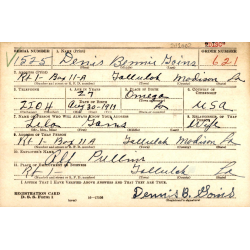 SERIAL NUMBER 1. NAME (Print) ORDER NUMBER
V1525 Denis Bennie Goins 621
2. ADDRESS (Print)
Rt 1- Box 11-A Tallulah Madison La
3. TELEPHONE 4. AGE IN YEARS 5. PLACE OF BIRTH 6. COUNTRY OF CITIZENSHIP
27 Omega
DATE OF BIRTH
2504 30-1913 La USA
7. NAME OF PERSON WHO WILL ALWAYS KNOW YOUR ADDRESS 8. RELATIONSHIP OF THAT PERSON
Goins Wife
9. ADDRESS OF THAT PERSON
Rt 1- Box 11-A Tallulah Madison La
10. EMPLOYER'S NAME
Pullin
11. PLACE OF EMPLOYMENT OR BUSINESS
Rt Tallulah La
I AFFIRM THAT I HAVE VERIFIED ABOVE ANSWERS AND THAT THEY ARE TRUE.
REGISTRATION CARD
D. S. S. Form 1
Dennis B. Goins